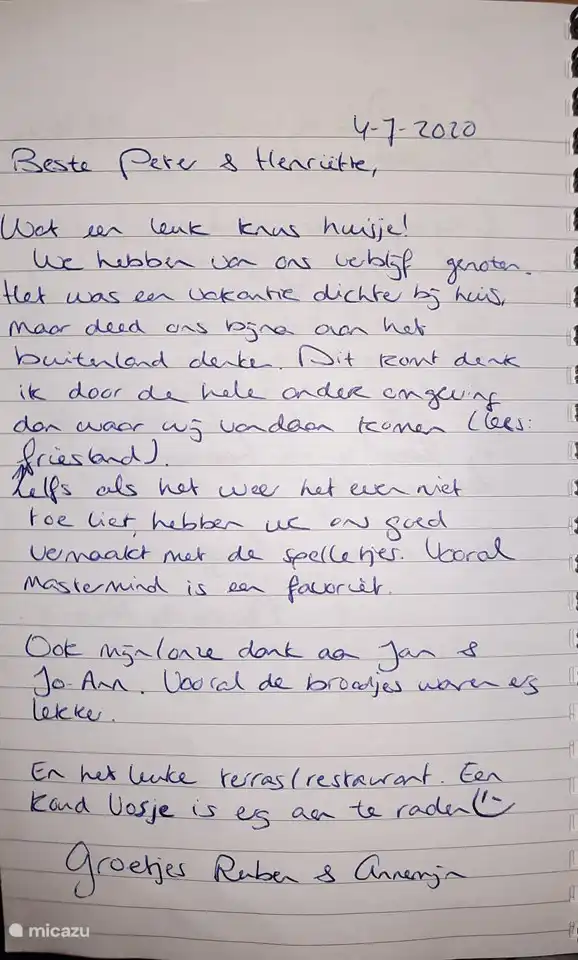 4-7-2020
Beste Peter & Henriëtte,
Wat een leuk knus huisje!
We hebben van ons verblijf genoten.
Het was een vakantie dichte bij huis,
maar deed ons bijna aan het
buitenland denke. Dit komt denk
ik door de hele ander omgeving
dan waar wij vandaan komen (lees:
friesland).
Zelfs als het weer het even niet
toe liet, hebben we ons goed
vermaakt met de spelletjes. Vooral
Mastermind is een favoriet.
Ook mijn/onze dank aa Jan &
Jo-Ann. Vooral de broodjes waren erg
lekke.
En het leuke terras/restaurant. Een
koud Vosje is erg aan te raden
Groetjes Ruben & Annemijn
micazu